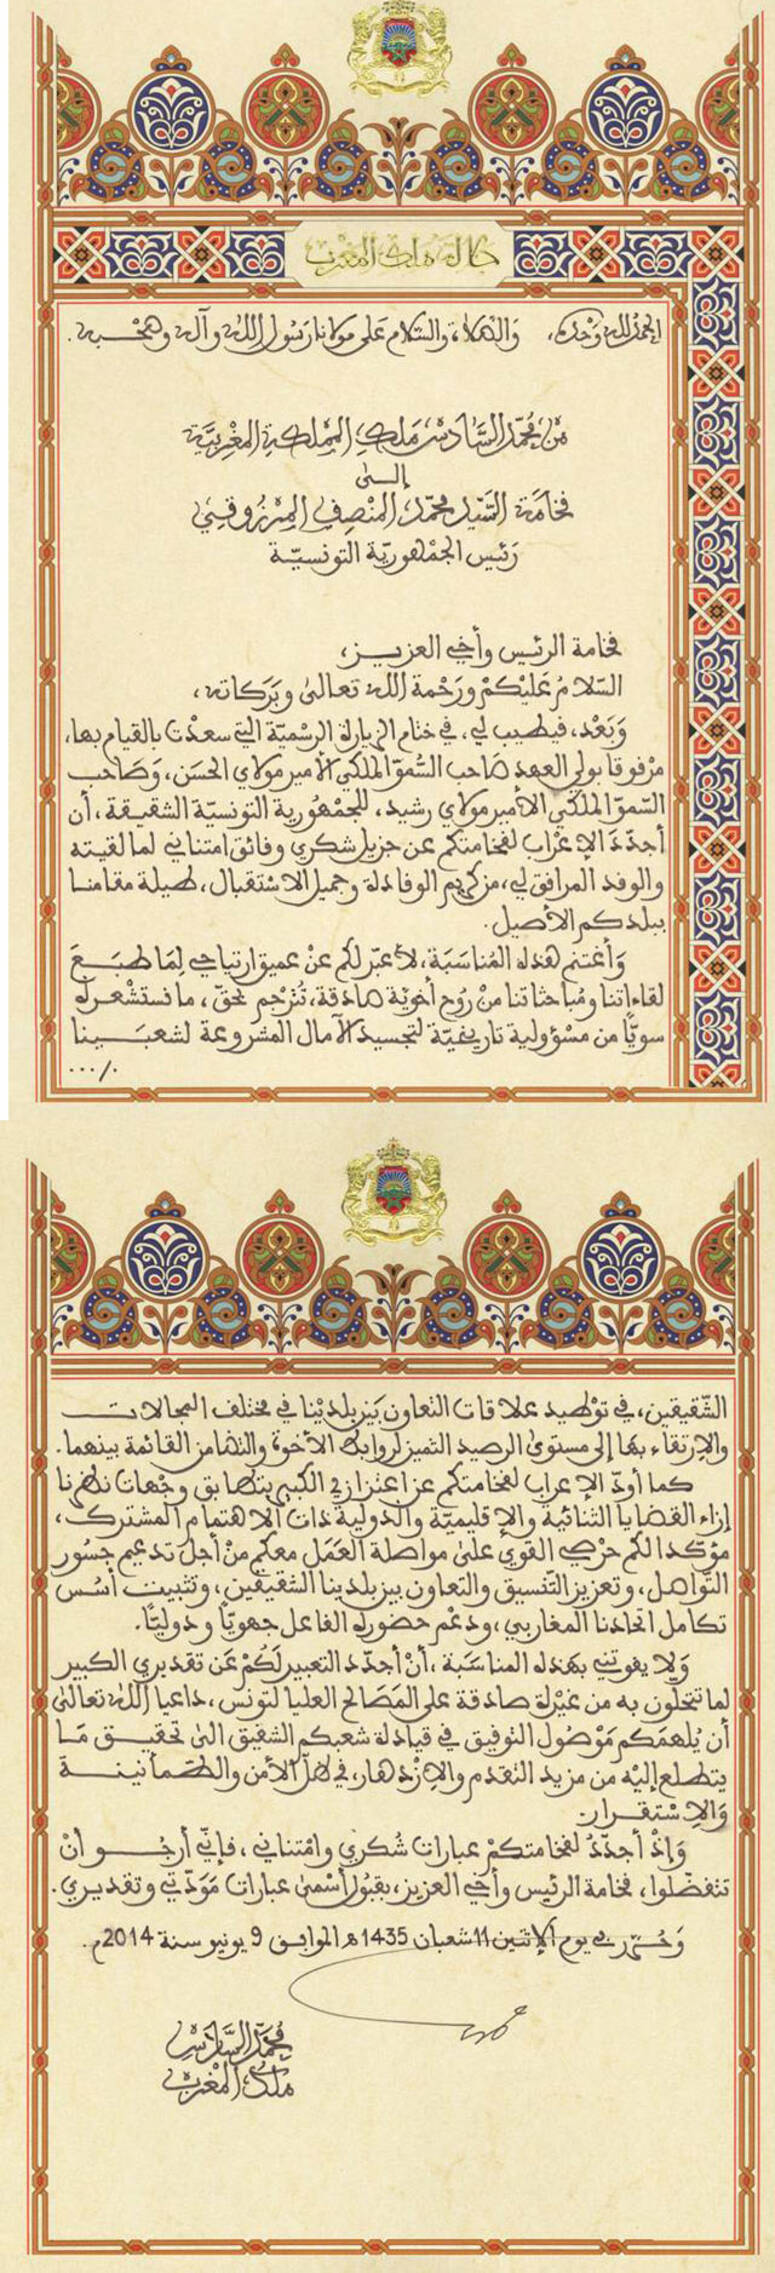 جلالة ملك المغرب
الحمد لله وحده، والصلاة والسلام على مولانا رسول الله وآله وصحبه.
من محمد السادس ملك المملكة المغربية
إلى
فخامة السيد محمد المنصف المرزوقي
رئيس الجمهورية التونسية
فخامة الرئيس وأخي العزيز،
السلام عليكم ورحمة الله تعالى وبركاته،
وبعد، فيطيب لي، في ختام الزيارة الرسمية التي سعدت بالقيام بها،
مرفوقا بولي العهد صاحب السمو الملكي الأمير مولاي الحسن، وصاحب
السمو الملكي الأمير مولاي رشيد، للجمهورية التونسية الشقيقة، أن
أجدد الإعراب لفخامتكم عن جزيل شكري وفائق امتناني لما لقيته
والوفد المرافق لي، من كريم الوفادة وجميل الاستقبال، طيلة مقامنا
ببلدكم الأصيل.
وأغتنم هذه المناسبة، لأعبر لكم عن عميق ارتياحي لما طبع
لقاءاتنا ومباحثاتنا من روح أخوية صادقة، تترجم بحق، ما نستشعره
سويا من مسؤولية تاريخية لتجسيد الآمال المشروعة لشعبينا
.../.
الشقيقين، في توطيد علاقات التعاون بين بلدينا في مختلف المجالات
والارتقاء بها إلى مستوى الرصيد المتميز لروابط الأخوة والتضامن القائمة بينهما.
كما أود الإعراب لفخامتكم عن اعتزازي الكبير بتطابق وجهات نظرنا
إزاء القضايا الثنائية والإقليمية والدولية ذات الاهتمام المشترك،
مؤكدا لكم حرصي القوي على مواصلة العمل معكم من أجل تدعيم جسور
التواصل، وتعزيز التنسيق والتعاون بين بلدينا الشقيقين، وتثبيت أسس
تكامل اتحادنا المغاربي، ودعم حضوره الفاعل جهويا ودوليا.
ولا يفوتني بهذه المناسبة، أن أجدد التعبير لكم عن تقديري الكبير
لما تتحلون به من غيرة صادقة على المصالح العليا لتونس، داعيا الله تعالى
أن يلهمكم موصول التوفيق في قيادة شعبكم الشقيق إلى تحقيق ما
يتطلع إليه من مزيد التقدم والازدهار، في ظل الأمن والطمأنينة
والاستقرار.
وإذ أجدد لفخامتكم عبارات شكري وامتناني، فإني أرجو أن
تتفضلوا، فخامة الرئيس وأخي العزيز، بقبول أسمى عبارات مودتي وتقديري.
وحرر في يوم الإثنين 11 شعبان 1435 هـ الموافق 9 يونيو سنة 2014م.
محمد السادس
ملك المغرب